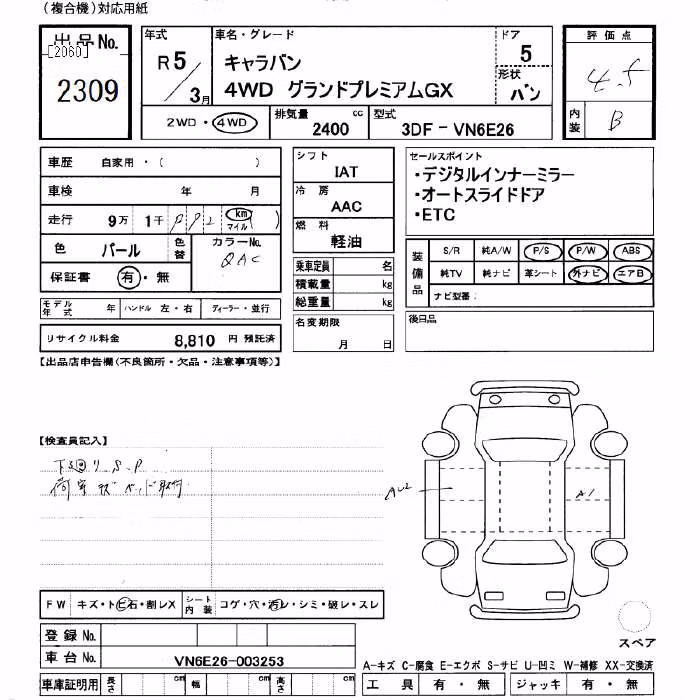 (複合機)対応用紙
出品No.
[2060]
2309
年式
R 5 / 3月
車名・グレード
キャラバン
4WD グランドプレミアムGX
ドア
5
形状
バン
2WD・4WD
排気量 2400 cc
型式 3DF-VN6E26
評価点
4.5
内装 B
車歴 自家用・( )
車検 年 月
走行 9万 1千 km マイル ( )
色 パール 色替
カラーNo.
QAC
保証書 有・無
モデル年式 年 ハンドル 左・右 ディーラー・並行
リサイクル料金 8,810 円 預託済
シフト
IAT
冷房
AAC
燃料
軽油
乗車定員 名
積載量 kg
総重量 kg
名変期限
月 日
セールスポイント
・デジタルインナーミラー
・オートスライドドア
・ETC
装備品
S/R 純A/W P/S P/W ABS
純TV 純ナビ 革シート 外ナビ エアB
ナビ型番:
後日品
【出品店申告欄(不良箇所・欠品・注意事項等)】
【検査員記入】
下回り S.P
荷室 ベッド取付
AU2
A1
FW キズ・トビ石・割レX
シート内装 コゲ・穴・汚レ・シミ・破レ・スレ
登録No.
車台No. VN6E26-003253
車庫証明用 長さ cm 幅 cm 高さ cm
スペア
A-キズ C-腐食 E-エクボ S-サビ U-凹ミ W-補修 XX-交換済
工具 有・無 ジャッキ 有・無